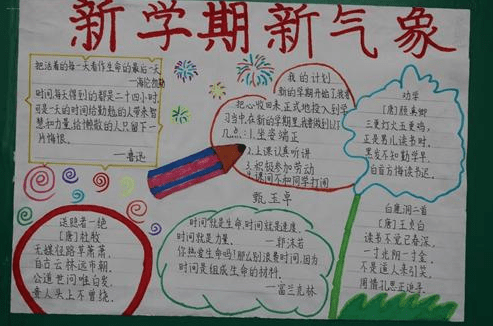 新学期新气象
把活着的每一天看作生命的最后一天
——海伦凯勒
时间每天得到的都是二十四小时,
可是一天的时间给勤勉的人带来智
慧和力量,给懒散的人只留下一
片悔恨.
——鲁迅
我的计划
新的学期开始了我要
把心收回来正式地投入到学
习当中,在新学期里,我要做到以下
几点:1.坐姿端正
2.上课认真听讲
3.积极参加劳动
4.课间不和同学打闹
甄玉卓
劝学
[唐]颜真卿
三更灯火五更鸡,
正是男儿读书时,
黑发不知勤学早,
白首方悔读书迟.
送隐者一绝
[唐]杜牧
无媒径路草萧萧,
自古云林远市朝,
公道世间唯白发,
贵人头上不曾饶.
时间就是生命,时间就是速度,
时间就是力量.
——郭沫若
你热爱生命吗?那么别浪费时间,因为
时间是组成生命的材料.
——富兰克林
白鹿洞二首
[唐]王贞白
读书不觉已春深,
一寸光阴一寸金,
不是道人来引笑,
周情孔思正追寻.